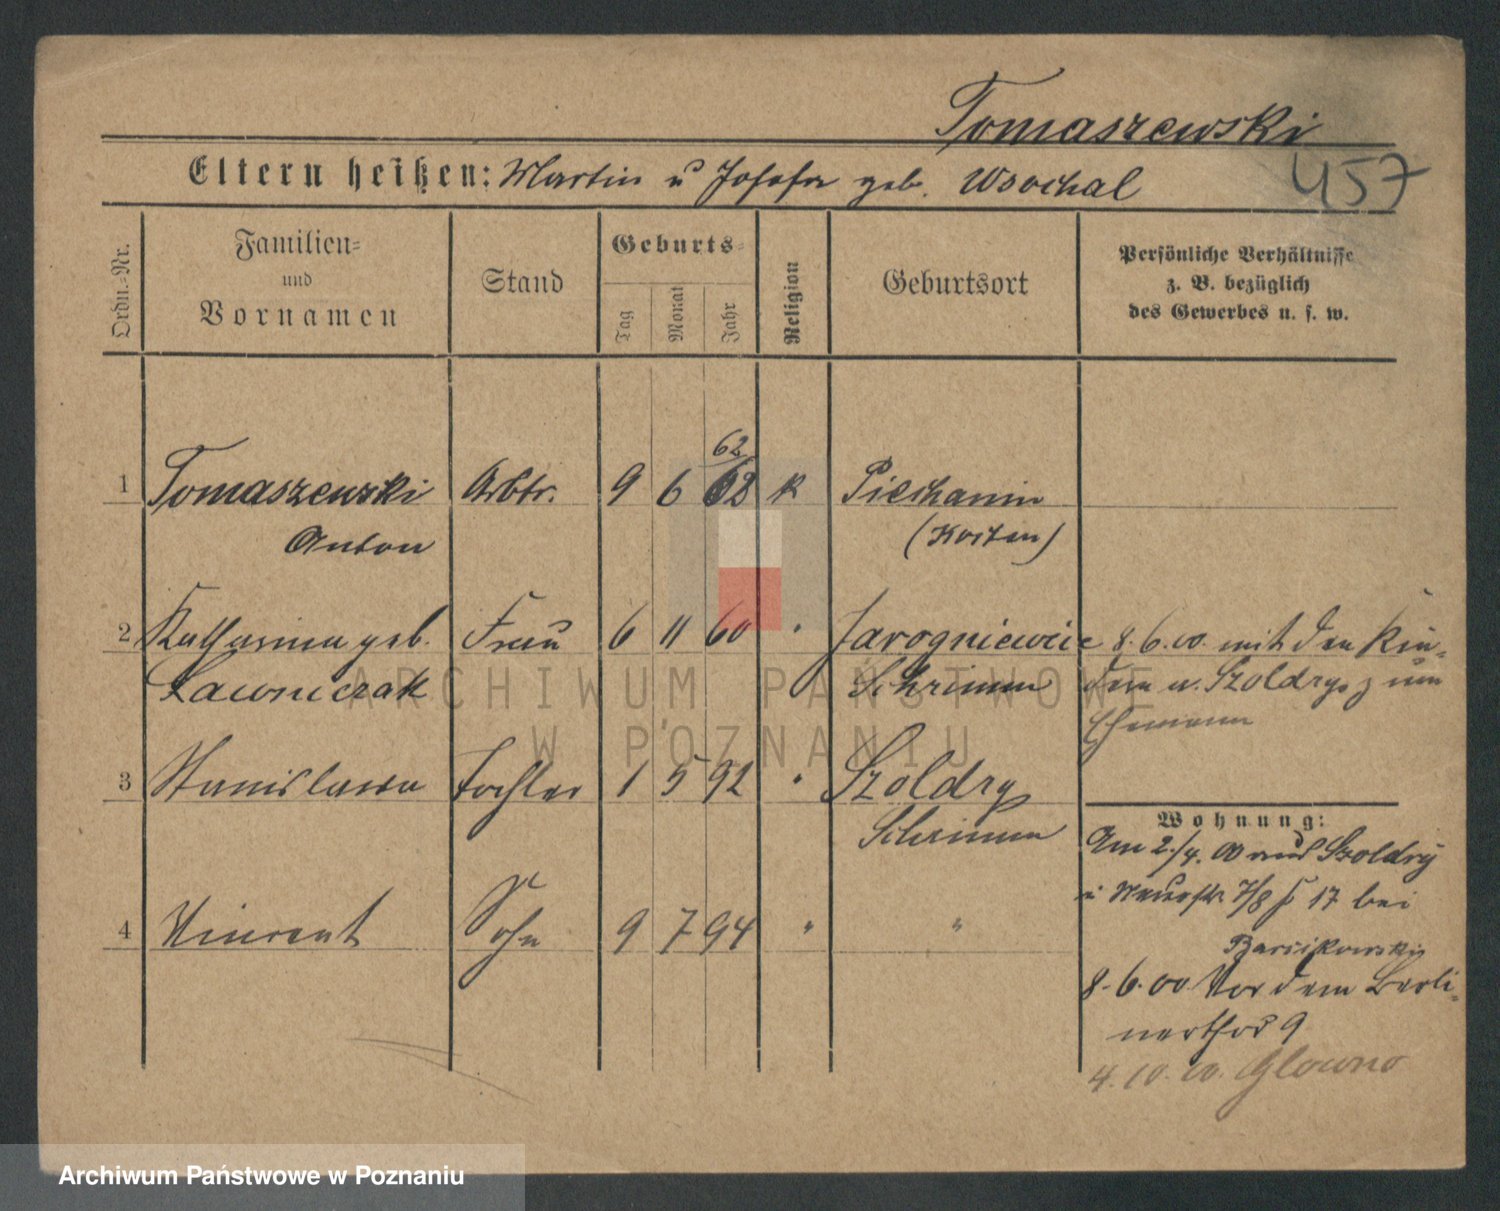 Tomaszewski
457
Eltern heißen: Martin u Josefa geb. Wsochal
Ordn.-Nr.
Familien-
und
Vornamen
Stand
Geburts-
Tag
Monat
Jahr
Religion
Geburtsort
Persönliche Verhältnisse
z. B. bezüglich
des Gewerbes u. s. w.
62
1 Tomaszewski Arbtr. 9 6 68 k Piechanin
Anton (Kosten)
2 Katharina geb. Frau 6 11 60 " Jarogniewice 8.6.00. mit den Kin-
Ławniczak Schrimm dern u. Szoldry zum
Ehemann
3 Stanislawa Tochter 1 5 92 " Szoldry
Schrimm
Wohnung:
Am 2./4. 00 aus Szoldry
7/8 17 bei
4 Vincent Sohn 9 7 94 " "
Barcikowski
8.6.00 Vor dem Berli-
nerthor 9
4.10.00. Glowno
ARCHIWUM PAŃSTWOWE
W POZNANIU
Archiwum Państwowe w Poznaniu